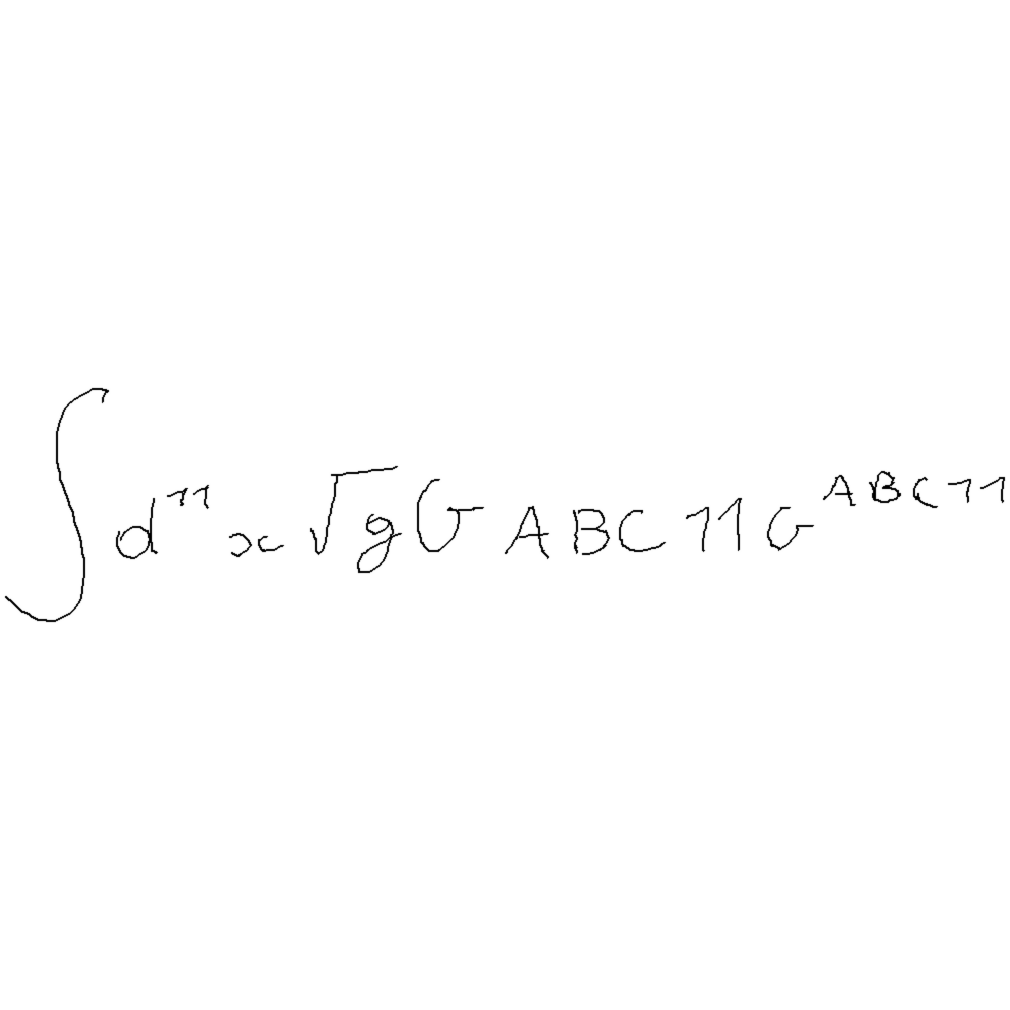 ∫d¹¹x√gG ABC11G^ABC11